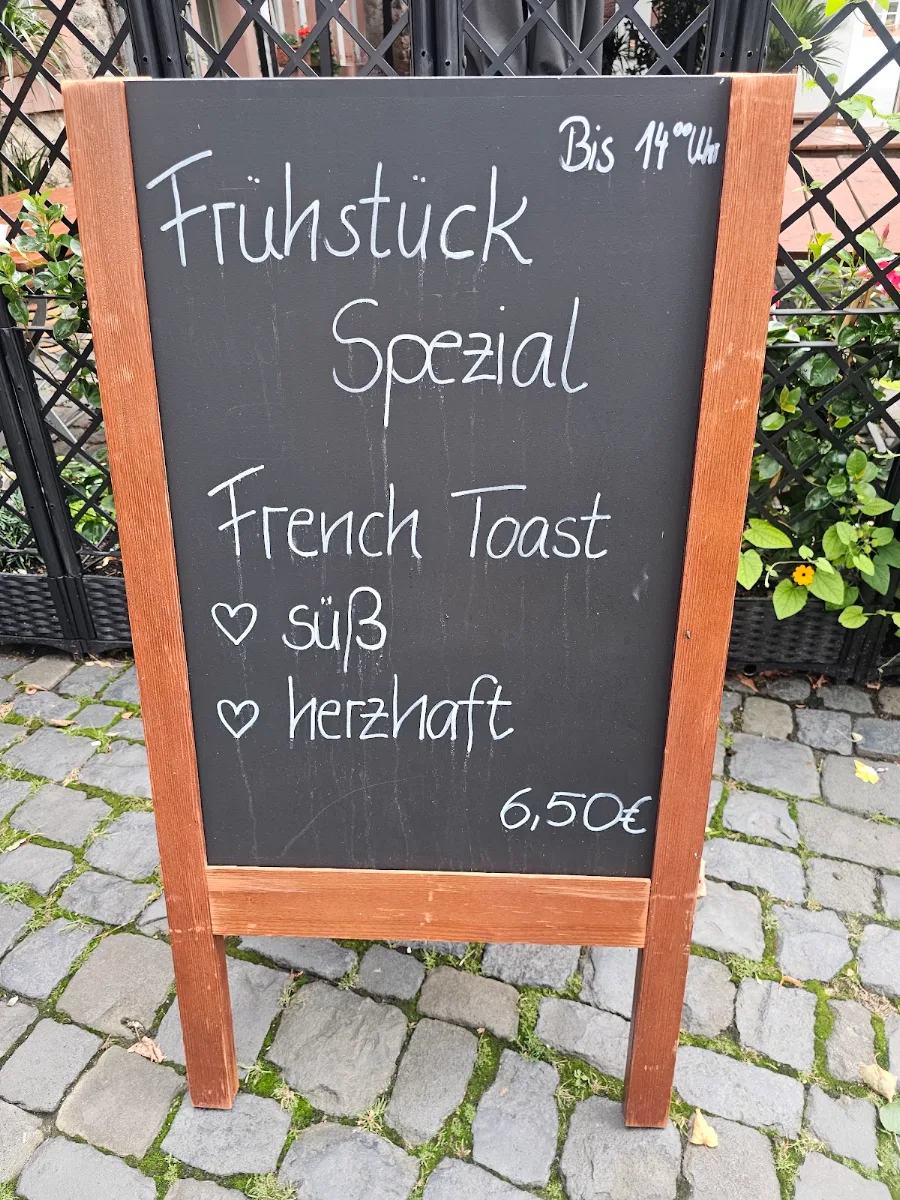 Bis 14⁰⁰ Uhr
Frühstück
Spezial
French Toast
♡ süß
♡ herzhaft
6,50€